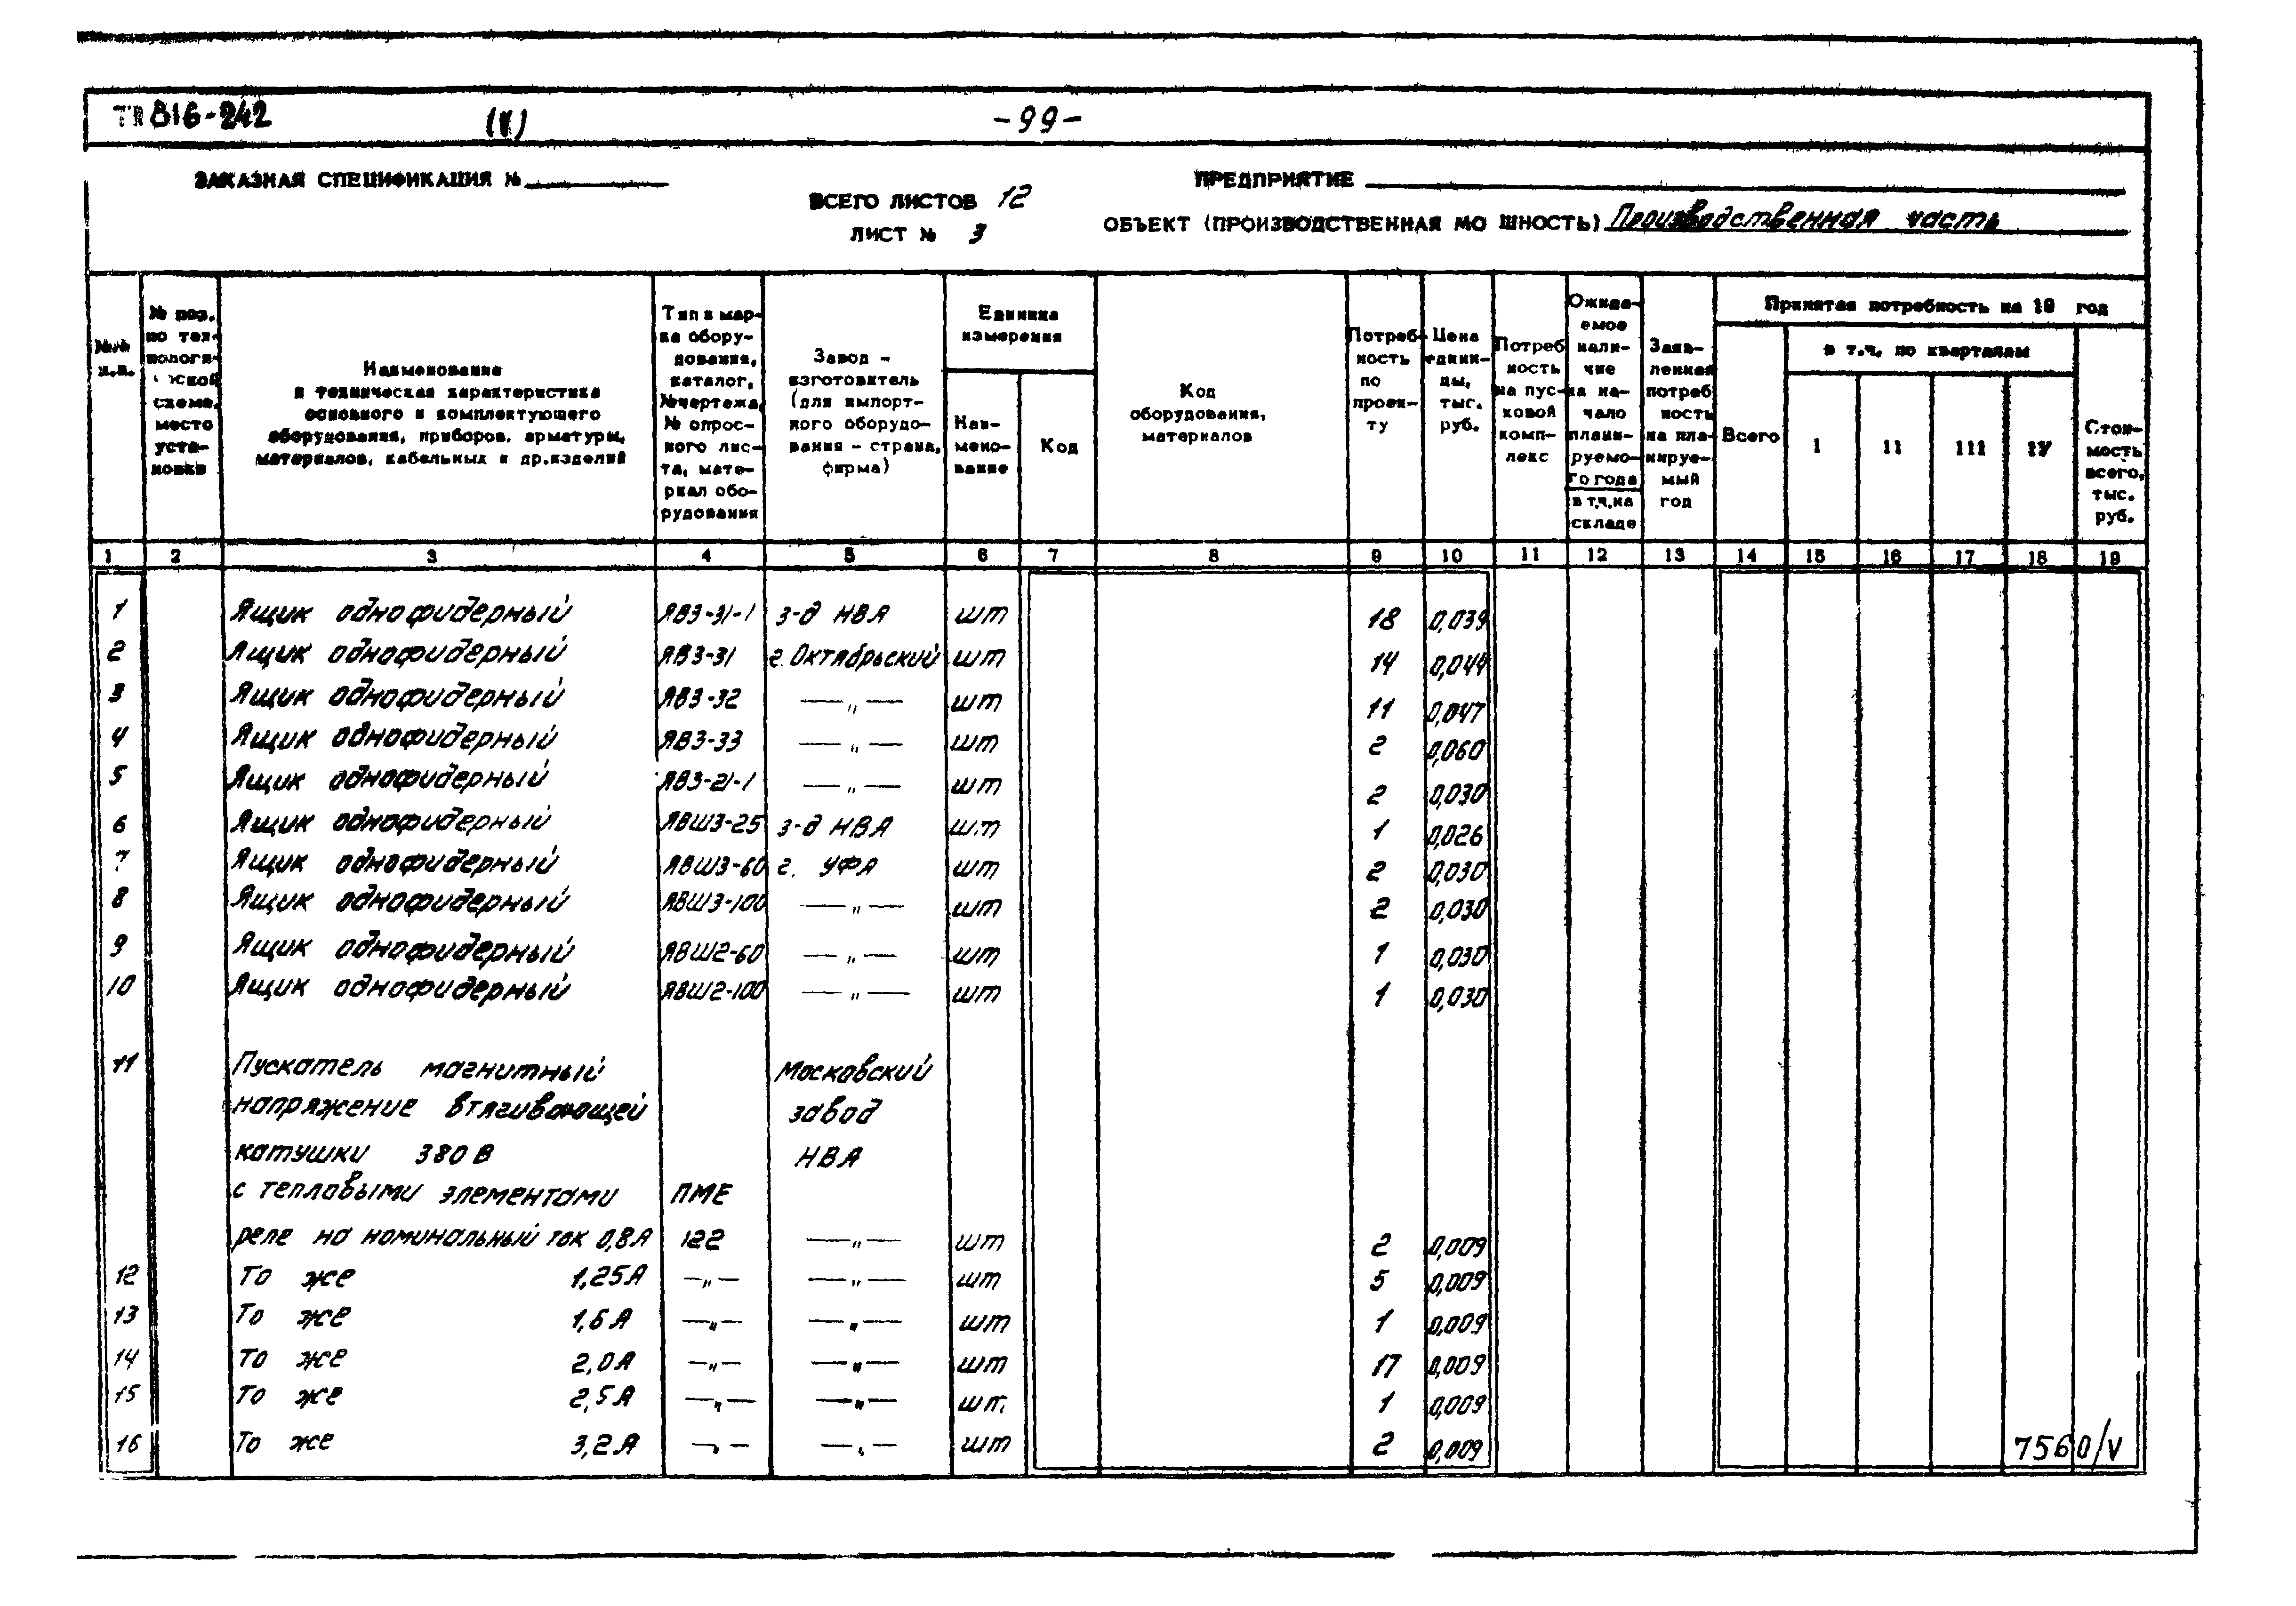 ТП 816-242 (V) -99-
ЗАКАЗНАЯ СПЕЦИФИКАЦИЯ №
ПРЕДПРИЯТИЕ
ВСЕГО ЛИСТОВ 12
ОБЪЕКТ (ПРОИЗВОДСТВЕННАЯ МО ШНОСТЬ) Производственная часть
ЛИСТ № 3
№№ п.п.
№ поз. по тех- нологи- ческой схеме, место уста- новки
Наименование
и техническая характеристика
основного и комплектующего
оборудования, приборов, арматуры,
материалов, кабельных и др.изделий
Тип и мар-
ка обору-
дования,
каталог,
№чертежа,
№ опрос-
ного лис-
та, мате-
риал обо-
рудования
Завод -
изготовитель
(для импорт-
ного оборудо-
вания - страна,
фирма)
Единица
измерения
Наи-
мено-
вание
Код
Код
оборудования,
материалов
Потреб-
ность
по
проек-
ту
Цена
едини-
цы,
тыс.
руб.
Потреб
ность
на пус-
ковой
комп-
лекс
Ожида-
емое
нали-
чие
на на-
чало
плани-
руемо-
го года
в т.ч.на
складе
Заяв-
ленная
потреб
ность
на пла-
нируе-
мый
год
Принятая потребность на 19 год
Всего
в т.ч. по кварталам
I II III IУ
Стои-
мость
всего,
тыс.
руб.
1 2 3 4 5 6 7 8 9 10 11 12 13 14 15 16 17 18 19
1 Ящик однофидерный ЯВЗ-31-1 з-д НВА шт 18 0,039
2 Ящик однофидерный ЯВЗ-31 г. Октябрьский шт 14 0,044
3 Ящик однофидерный ЯВЗ-32 —„— шт 11 0,047
4 Ящик однофидерный ЯВЗ-33 —„— шт 2 0,060
5 Ящик однофидерный ЯВЗ-21-1 —„— шт 2 0,030
6 Ящик однофидерный ЯВШЗ-25 з-д НВА шт 1 0,026
7 Ящик однофидерный ЯВШЗ-60 г. УФА шт 2 0,030
8 Ящик однофидерный ЯВШЗ-100 —„— шт 2 0,030
9 Ящик однофидерный ЯВШ2-60 —„— шт 1 0,030
10 Ящик однофидерный ЯВШ2-100 —„— шт 1 0,030
11 Пускатель магнитный Московский
напряжение втягивающей завод
катушки 380 В НВА
с тепловыми элементами ПМЕ
реле на номинальный ток 0,8А 122 —„— шт 2 0,009
12 То же 1,25А —„— —„— шт 5 0,009
13 То же 1,6А —„— —„— шт 1 0,009
14 То же 2,0А —„— —„— шт 17 0,009
15 То же 2,5А —„— —„— шт. 1 0,009
16 То же 3,2А —„— —„— шт 2 0,009
7560/V